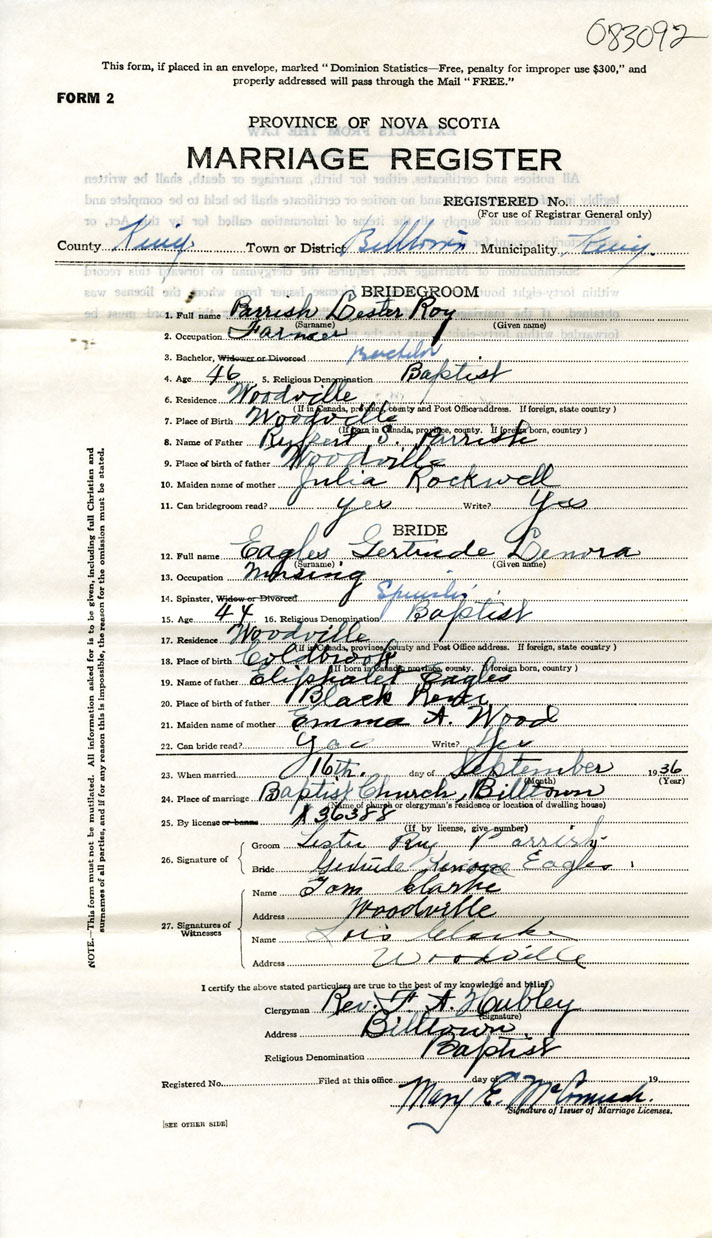 083092
This form, if placed in an envelope, marked "Dominion Statistics—Free, penalty for improper use $300," and
properly addressed will pass through the Mail "FREE."
FORM 2
PROVINCE OF NOVA SCOTIA
MARRIAGE REGISTER
REGISTERED No.
(For use of Registrar General only)
County Kings Town or District Billtown Municipality Kings.
BRIDEGROOM
1. Full name Parrish Lester Roy
(Surname) (Given name)
2. Occupation Farmer
3. Bachelor, Widower or Divorced Bachelor
4. Age 46 5. Religious Denomination Baptist
6. Residence Woodville
(If in Canada, province, county and Post Office address. If foreign, state country)
7. Place of Birth Woodville
(If born in Canada, province, county. If foreign born, country)
8. Name of Father Rupert S. Parrish
9. Place of birth of father Woodville
10. Maiden name of mother Julia Rockwell
11. Can bridegroom read? yes Write? Yes
BRIDE
12. Full name Eagles Gertrude Lenora
(Surname) (Given name)
13. Occupation Nursing
14. Spinster, Widow or Divorced Spinster
15. Age 44 16. Religious Denomination Baptist
17. Residence Woodville
(If in Canada, province, county and Post Office address. If foreign, state country)
18. Place of birth Coldbrook
(If born in Canada, province, county. If foreign born, country)
19. Name of father Eliphalet Eagles
20. Place of birth of father Black River
21. Maiden name of mother Emma A. Wood
22. Can bride read? Yes Write? Yes
23. When married 16th. day of September 1936
(Month) (Year)
24. Place of marriage Baptist Church, Billtown
(Name of church or clergyman's residence or location of dwelling house)
25. By license or banns A 36388
(If by license, give number)
26. Signature of
Groom Lester Roy Parrish
Bride Gertrude Lenora Eagles
27. Signatures of Witnesses
Name Tom Clarke
Address Woodville
Name Lois Clarke
Address Woodville
I certify the above stated particulars are true to the best of my knowledge and belief.
Clergyman Rev. F. A. Hubley
(Signature)
Address Billtown
Religious Denomination Baptist
Registered No. Filed at this office day of 19
Mary E.
Signature of Issuer of Marriage Licenses.
[SEE OTHER SIDE]
NOTE.—This form must not be mutilated. All information asked for is to be given, including full Christian and
surnames of all parties, and if for any reason this is impossible, the reason for the omission must be stated.